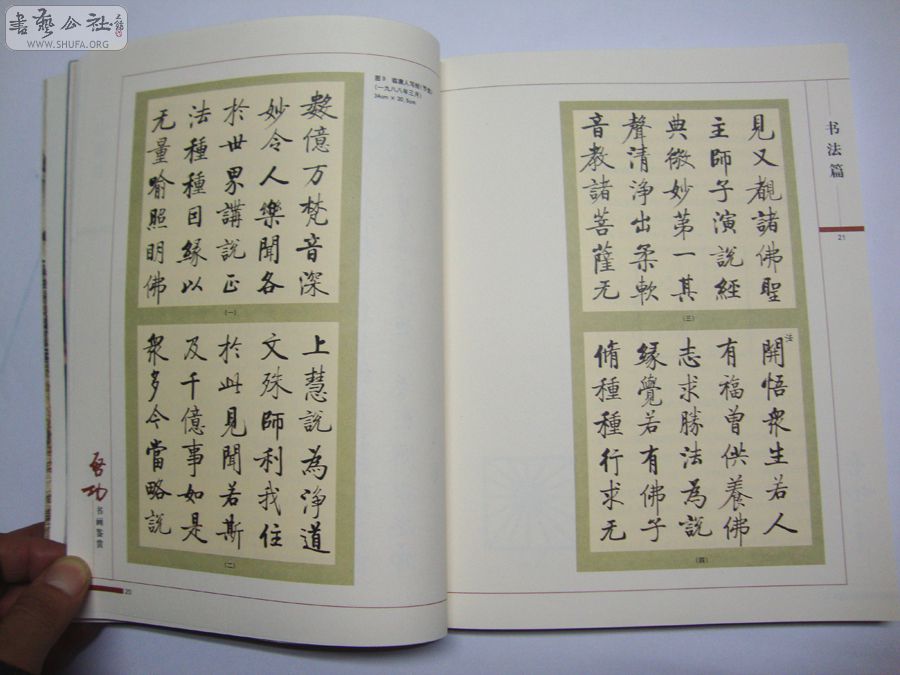 書藝公社
WWW.SHUFA.ORG
图9 临唐人写经(节选)
(一九八八年三月)
34cm × 20.5cm
數億万梵音深
妙令人樂聞各
於世界講說正
法種種因緣以
无量喻照明佛
(一)
上慧說為淨道
文殊師利我住
於此見聞若斯
及千億事如是
眾多今當略說
(二)
启功
书画鉴赏
20
見又覩諸佛聖
主師子演說經
典微妙第一其
聲清淨出柔軟
音教諸菩薩无
(三)
法
開悟衆生若人
有福曾供養佛
志求勝法為說
緣覺若有佛子
脩種種行求无
(四)
书法篇
21